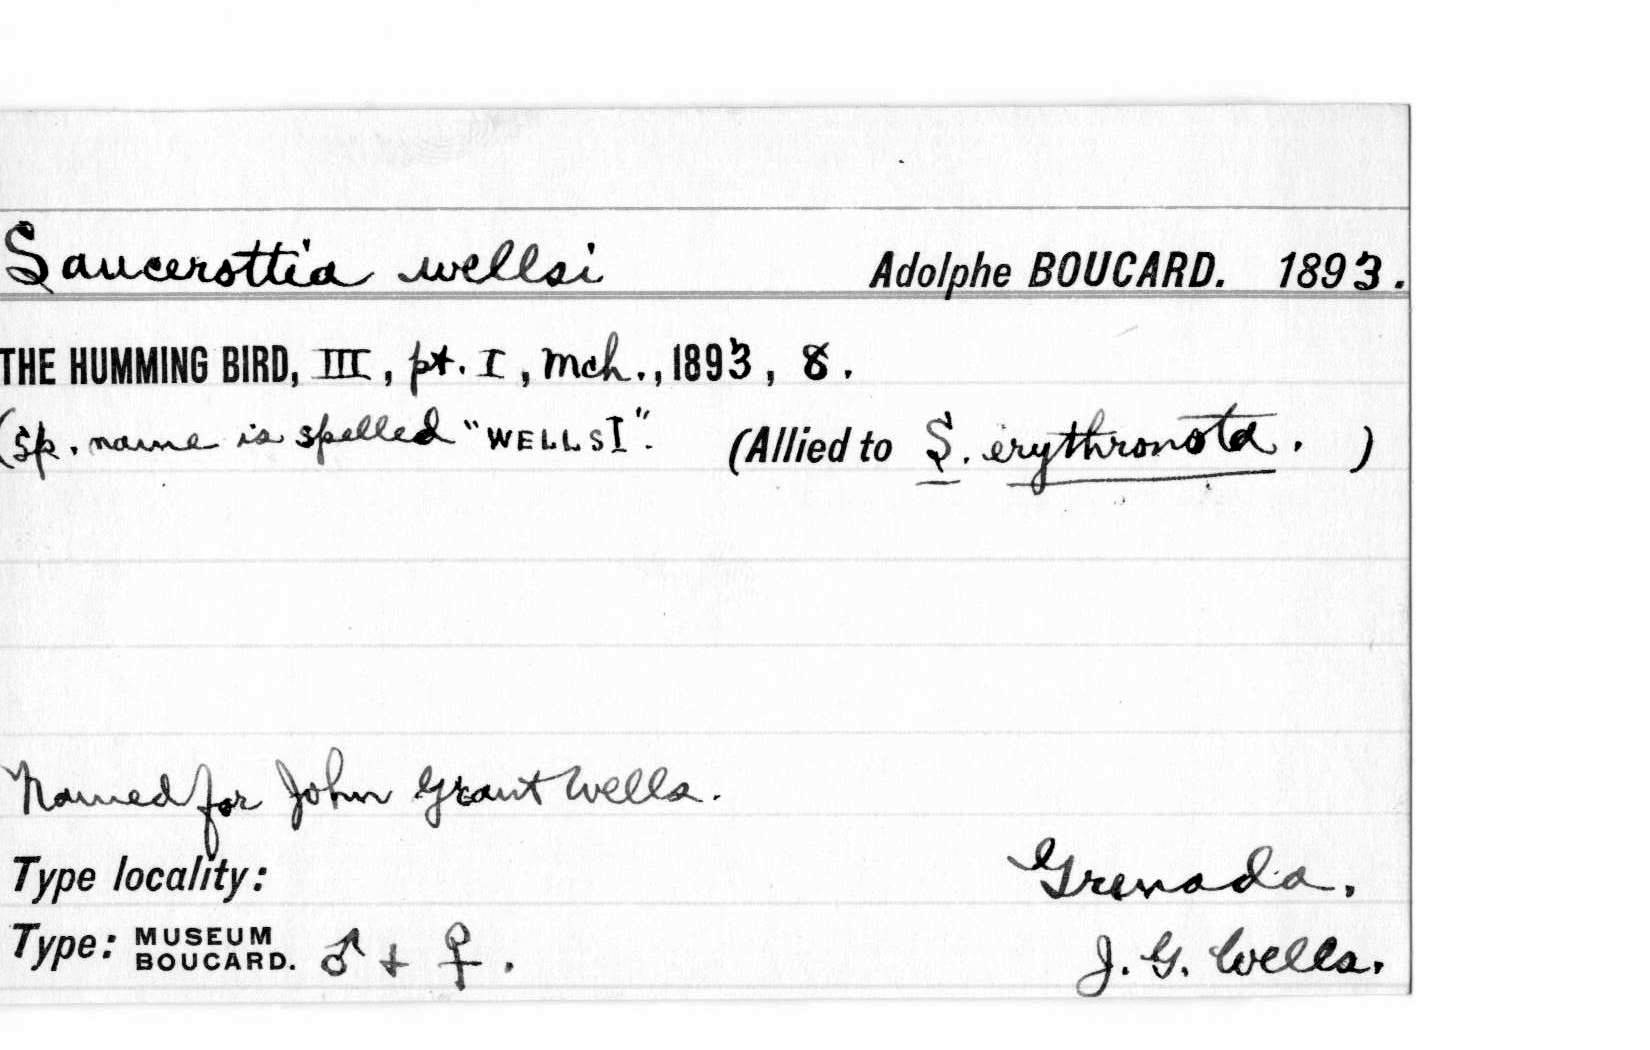 Saucerottia wellsi Adolphe BOUCARD. 1893.
THE HUMMING BIRD, III, pt. I, Mch., 1893, 8.
(sp. name is spelled "WELLSI". (Allied to S. erythronota. )
Named for John Grant Wells.
Type locality: Grenada.
Type: MUSEUM BOUCARD. ♂ + ♀. J. G. Wells.